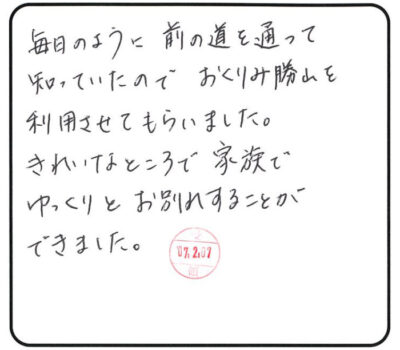 毎日のように 前の道を通って
知っていたので おくりみ勝山を
利用させてもらいました。
きれいなところで 家族で
ゆっくりと お別れすることが
できました。
07.2.07